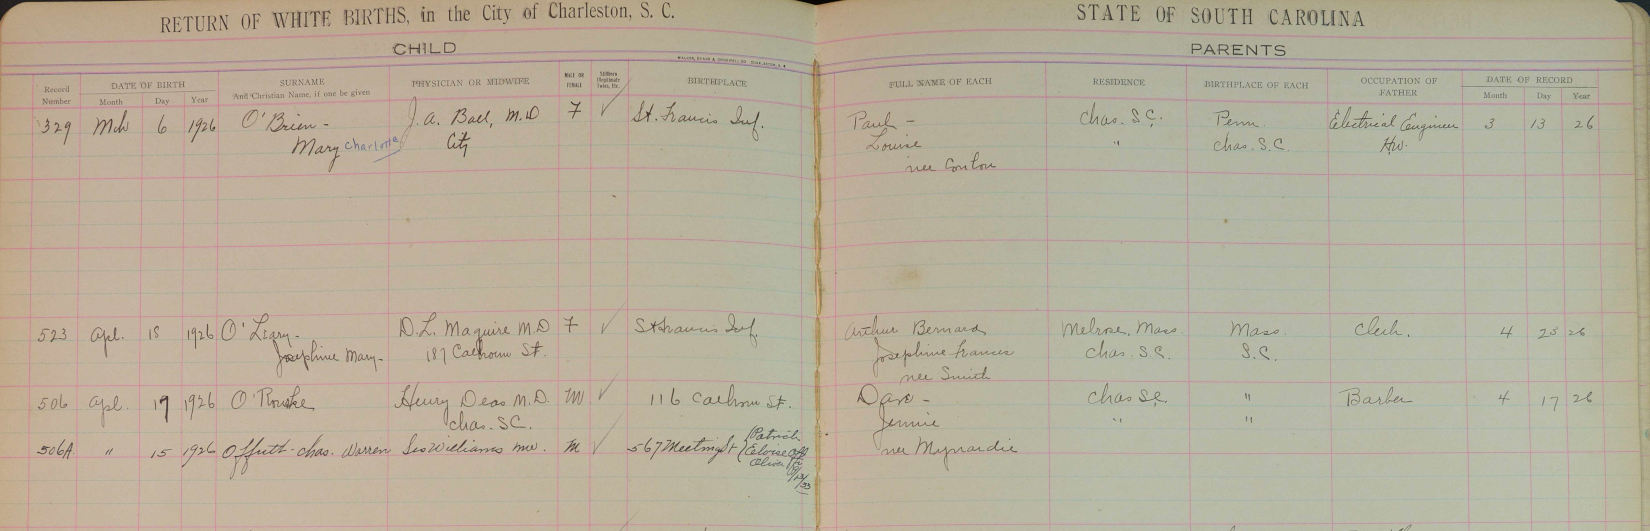 RETURN OF WHITE BIRTHS, in the City of Charleston, S. C.
STATE OF SOUTH CAROLINA
CHILD
PARENTS
Record Number
DATE OF BIRTH
Month Day Year
SURNAME
And Christian Name, if one be given
PHYSICIAN OR MIDWIFE
MALE OR FEMALE
Stillborn Illegitimate Twins, Etc.
BIRTHPLACE
FULL NAME OF EACH
RESIDENCE
BIRTHPLACE OF EACH
OCCUPATION OF FATHER
DATE OF RECORD
Month Day Year
329 Mch 6 1926 O'Brien - J. A. Ball, M.D F St. Francis Inf. Paul - Chas. S.C. Penn. Electrical Engineer 3 13 26
Mary Charlotte City Louise " Chas. S.C. Hw.
nee Conlon
523 Apl. 18 1926 O'Leary - D. L. Maguire M.D F St Francis Inf. Arthur Bernard Melrose, Mass. Mass. Clerk. 4 23 26
Josephine Mary - 187 Calhoun St. Josephine Frances Chas. S.C. S.C.
nee Smith
506 Apl. 17 1926 O'Rourke Henry Deas M.D. M 116 Calhoun St. Dave - Chas S.C. " Barber 4 17 26
Chas. S.C. Jennie " "
506A. " 15 1926 Offutt - Chas. Warren Williams mw. M 567 Meeting St (Patrick nee Mynardie
Eloise
Oliver